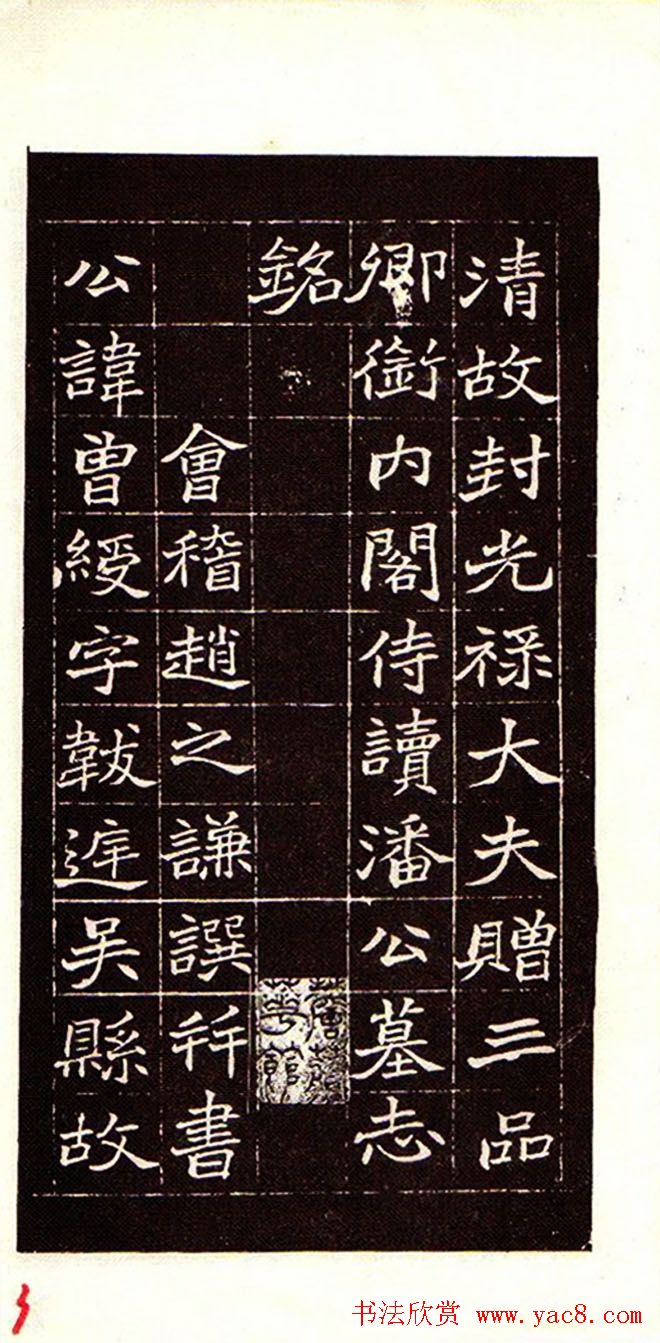 清故封光祿大夫贈三品
卿銜内閣侍讀潘公墓志
銘
會稽趙之謙譔并書
公諱曾綬字韍遲吳縣故
书法欣赏 www.yac8.com